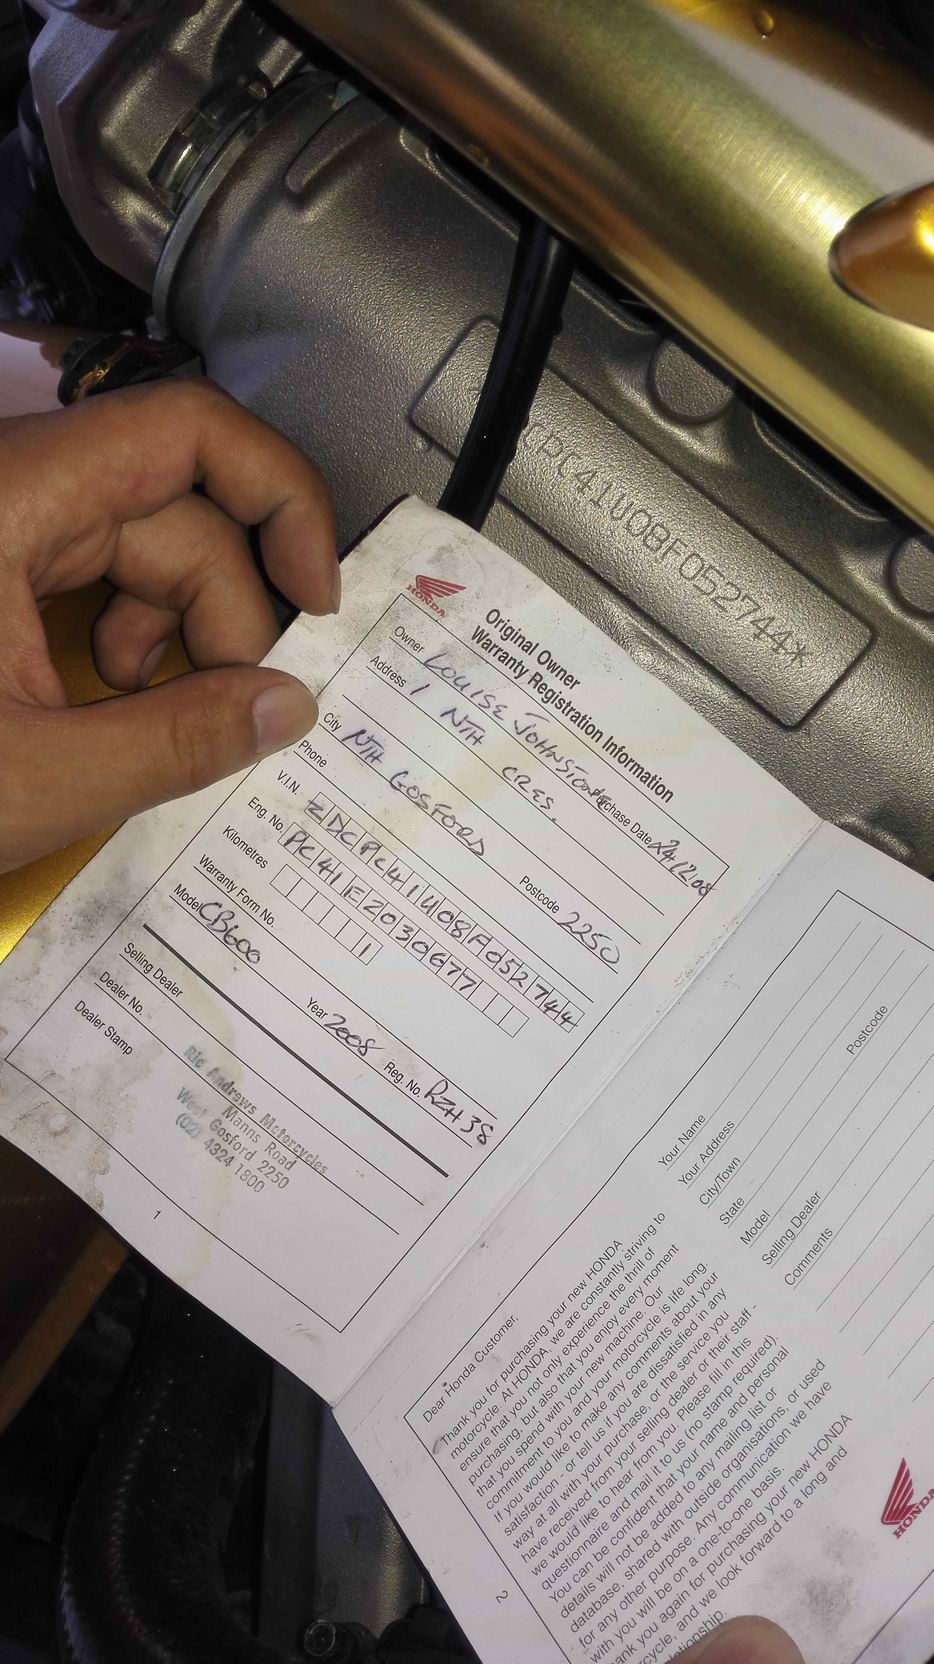 CPC41U08F052744*
HONDA
Original Owner
Warranty Registration Information
Owner LOUISE JOHNSTONE Purchase Date 24/12/08
Address 1 NTH CRES.
City NTH GOSFORD Postcode 2250
Phone
V.I.N. ZDCPC41U08F052744
Eng. No. PC41E2030677
Kilometres 1
Warranty Form No.
Model CB600 Year 2008 Reg. No. RZH38
Selling Dealer
Dealer No.
Dealer Stamp
Ric Andrews Motorcycles
Manns Road
West Gosford 2250
(02) 4324 1800
1
Your Name
Your Address
City/Town
State Postcode
Model
Selling Dealer
Comments
Dear Honda Customer,
Thank you for purchasing your new HONDA
motorcycle. At HONDA, we are constantly striving to
ensure that you not only experience the thrill of
purchasing, but also that you enjoy every moment
that you spend with your new machine. Our
commitment to you and your motorcycle is life long.
If you would like to make any comments about your
satisfaction - or tell us if you are dissatisfied in any
way at all with your purchase, or the service you
have received from your selling dealer or their staff -
we would like to hear from you. Please fill in this
questionnaire and mail it to us (no stamp required).
You can be confident that your name and personal
details will not be added to any mailing list or
database, shared with outside organisations, or used
for any other purpose. Any communication we have
with you will be on a one-to-one basis.
ank you again for purchasing your new HONDA
rcycle, and we look forward to a long and
lationship.
HONDA
2